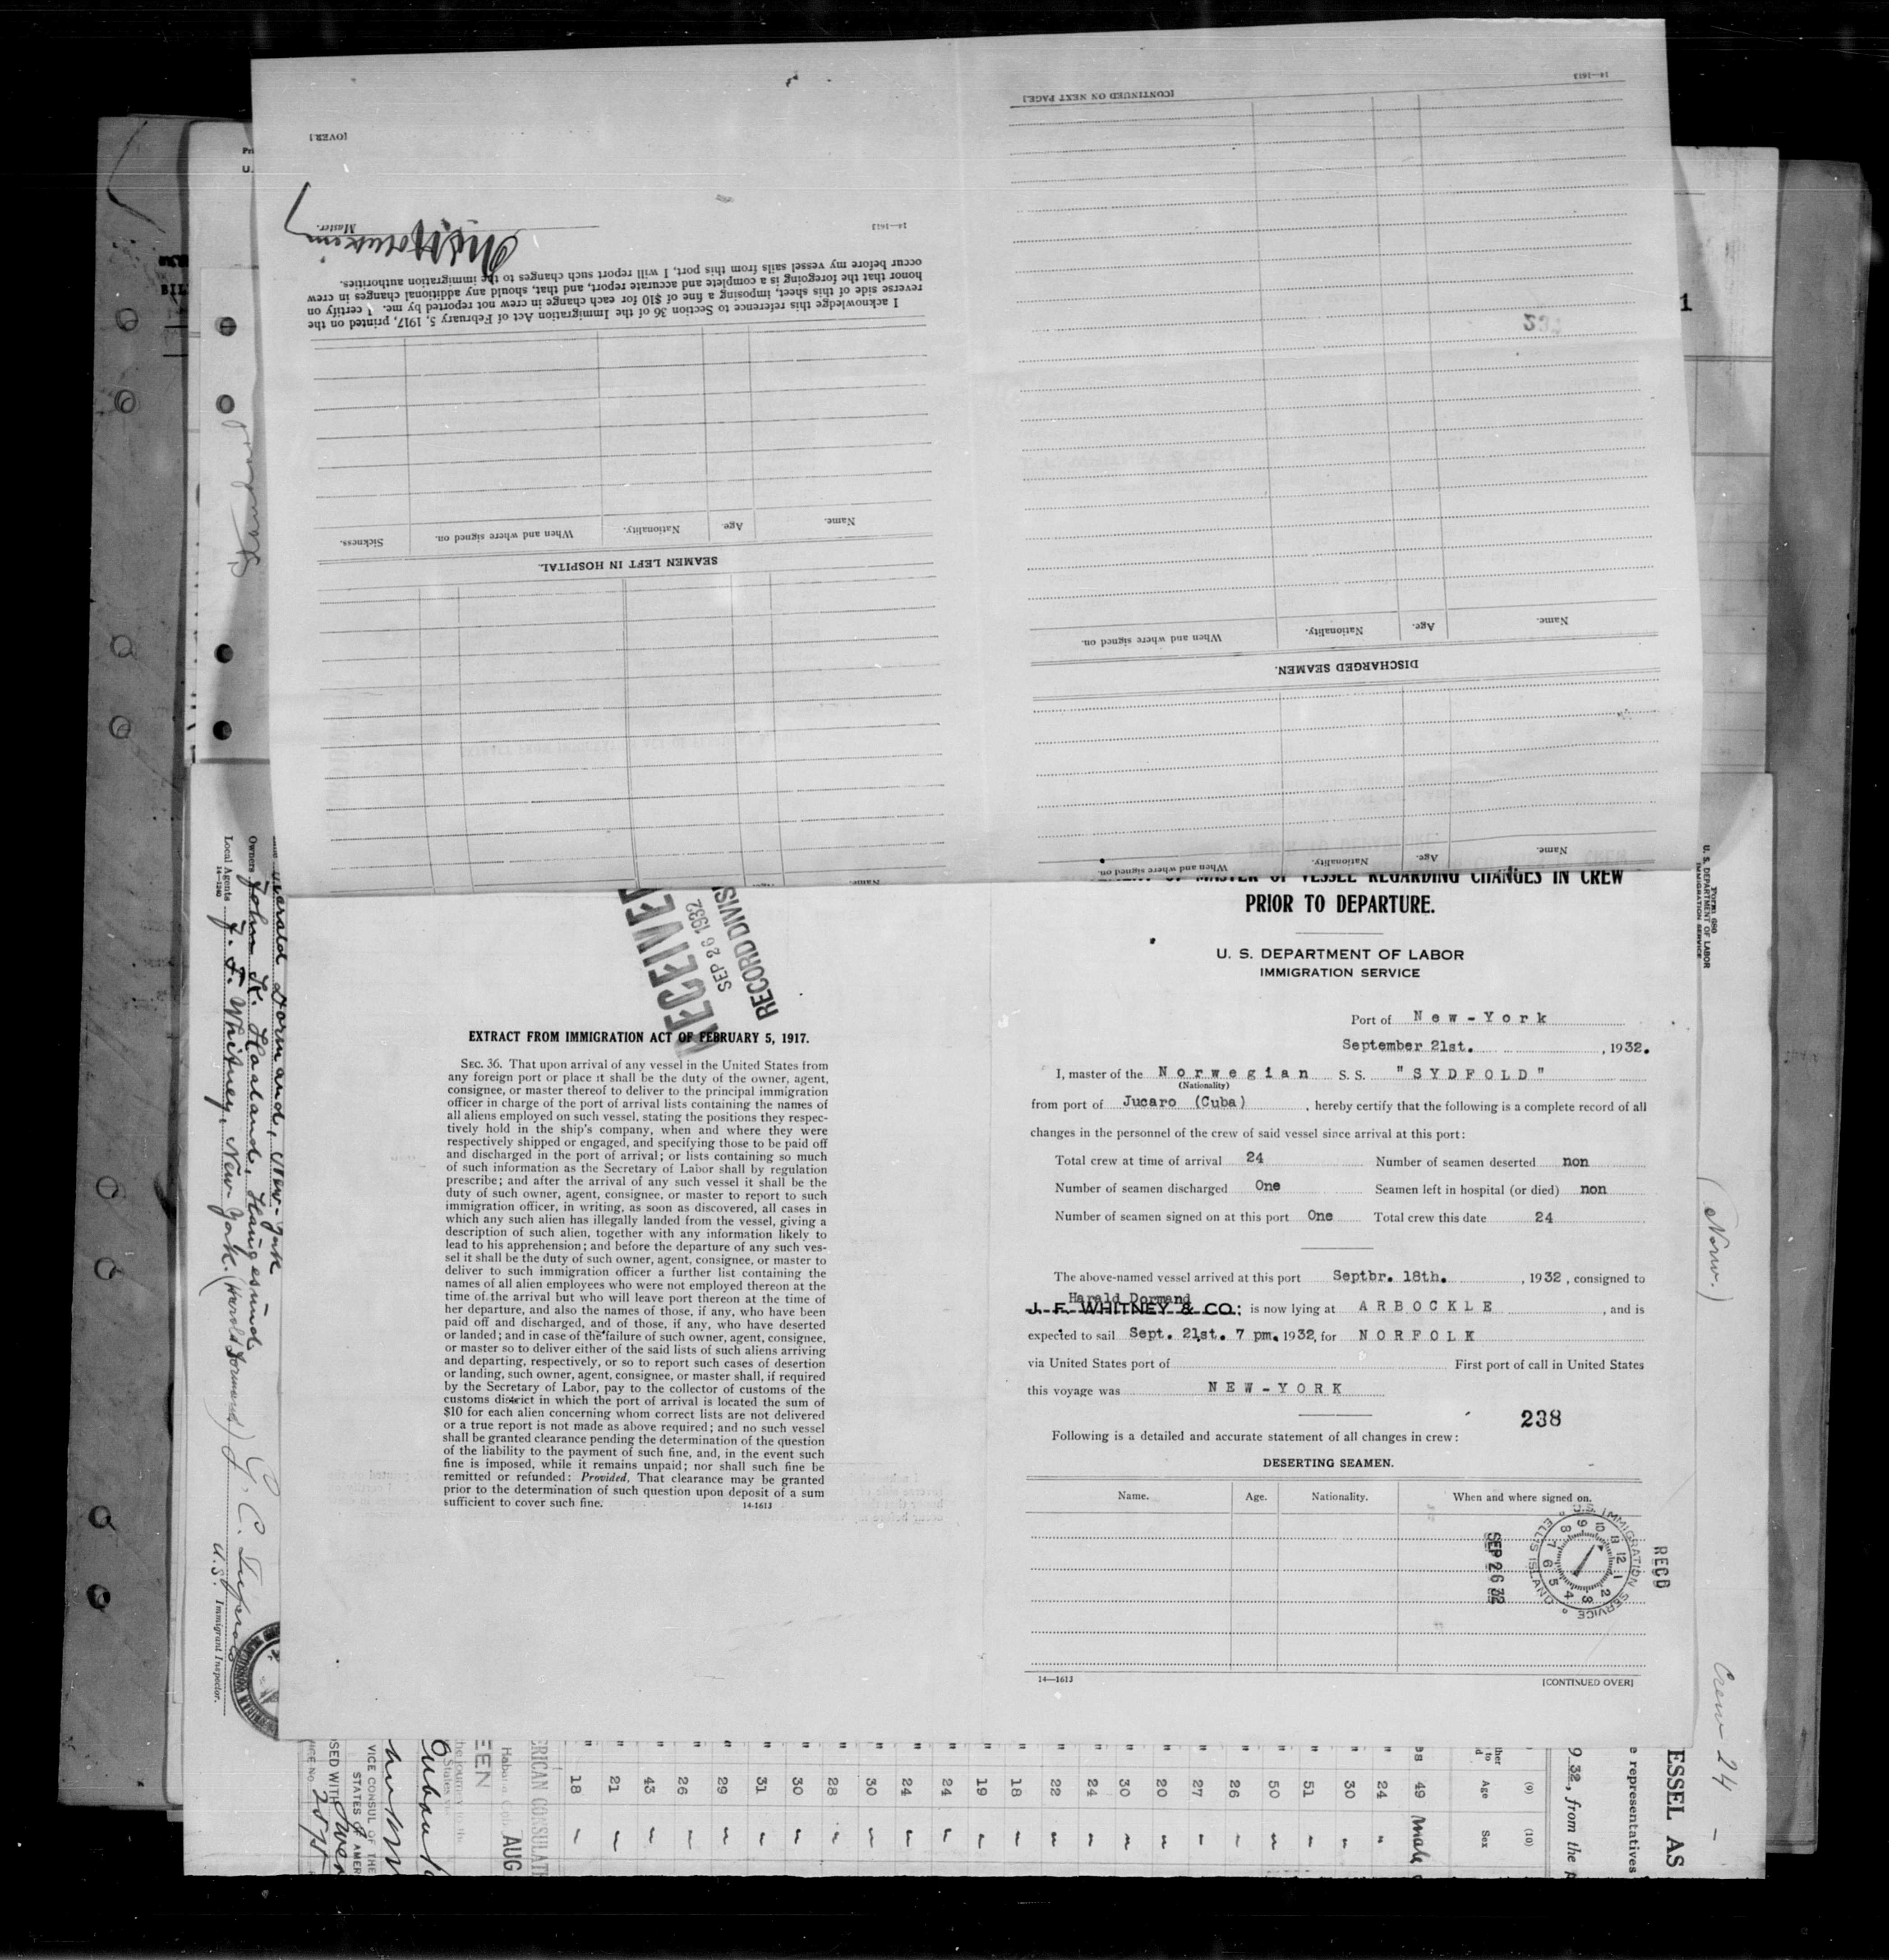 [OVER.]
Master.
14—1613
I acknowledge this reference to Section 36 of the Immigration Act of February 5, 1917, printed on the
reverse side of this sheet, imposing a fine of $10 for each change in crew not reported by me. I certify on
honor that the foregoing is a complete and accurate report, and that, should any additional changes in crew
occur before my vessel sails from this port, I will report such changes to the immigration authorities.
Name.
Age.
Nationality.
When and where signed on.
Sickness.
SEAMEN LEFT IN HOSPITAL.
Name.
14—1613
[CONTINUED ON NEXT PAGE.]
Name.
Age.
Nationality.
When and where signed on.
DISCHARGED SEAMEN.
Name.
Age.
Nationality.
When and where signed on.
RECEIVED
SEP 26 1932
EXTRACT FROM IMMIGRATION ACT OF FEBRUARY 5, 1917.
SEC. 36. That upon arrival of any vessel in the United States from
any foreign port or place it shall be the duty of the owner, agent,
consignee, or master thereof to deliver to the principal immigration
officer in charge of the port of arrival lists containing the names of
all aliens employed on such vessel, stating the positions they respec-
tively hold in the ship's company, when and where they were
respectively shipped or engaged, and specifying those to be paid off
and discharged in the port of arrival; or lists containing so much
of such information as the Secretary of Labor shall by regulation
prescribe; and after the arrival of any such vessel it shall be the
duty of such owner, agent, consignee, or master to report to such
immigration officer, in writing, as soon as discovered, all cases in
which any such alien has illegally landed from the vessel, giving a
description of such alien, together with any information likely to
lead to his apprehension; and before the departure of any such ves-
sel it shall be the duty of such owner, agent, consignee, or master to
deliver to such immigration officer a further list containing the
names of all alien employees who were not employed thereon at the
time of the arrival but who will leave port thereon at the time of
her departure, and also the names of those, if any, who have been
paid off and discharged, and of those, if any, who have deserted
or landed; and in case of the failure of such owner, agent, consignee,
or master so to deliver either of the said lists of such aliens arriving
and departing, respectively, or so to report such cases of desertion
or landing, such owner, agent, consignee, or master shall, if required
by the Secretary of Labor, pay to the collector of customs of the
customs district in which the port of arrival is located the sum of
$10 for each alien concerning whom correct lists are not delivered
or a true report is not made as above required; and no such vessel
shall be granted clearance pending the determination of the question
of the liability to the payment of such fine, and, in the event such
fine is imposed, while it remains unpaid; nor shall such fine be
remitted or refunded: Provided, That clearance may be granted
prior to the determination of such question upon deposit of a sum
sufficient to cover such fine.
14-1613
MASTER OF VESSEL REGARDING CHANGES IN CREW
PRIOR TO DEPARTURE.
U. S. DEPARTMENT OF LABOR
IMMIGRATION SERVICE
Port of New-York
September 21st. , 1932.
I, master of the Norwegian S. S. "SYDFOLD"
(Nationality)
from port of Jucaro (Cuba) , hereby certify that the following is a complete record of all
changes in the personnel of the crew of said vessel since arrival at this port:
Total crew at time of arrival 24 Number of seamen deserted non
Number of seamen discharged One Seamen left in hospital (or died) non
Number of seamen signed on at this port One Total crew this date 24
The above-named vessel arrived at this port Septbr. 18th. , 1932, consigned to
Harald Dormand
J. F. WHITNEY & CO.; is now lying at ARBOCKLE , and is
expected to sail Sept. 21st. 7 pm. 1932, for NORFOLK
via United States port of First port of call in United States
this voyage was NEW-YORK
238
Following is a detailed and accurate statement of all changes in crew:
DESERTING SEAMEN.
Name. Age. Nationality. When and where signed on.
SEP 26 32
U.S. IMMIGRATION SERVICE
ELLIS ISLAND
RECD
14—1613
[CONTINUED OVER]
Form 680
U. S. DEPARTMENT OF LABOR
IMMIGRATION SERVICE
(Norw.)
Crew 24 —
Harald Dormand, New-York
Owners John K. Haaland, Haugesund
Local Agents J. F. Whitney, New-York. (Harold Dormand)
14—1240
U.S. Immigrant Inspector.
ESSEL AS
e representatives
9 32, from the
(9) (10)
Age Sex
49 male
24
30
51
50
26
27
20
30
24
22
18
19
24
24
30
28
30
31
29
26
43
21
18
AUG
VICE CONSUL OF THE
1